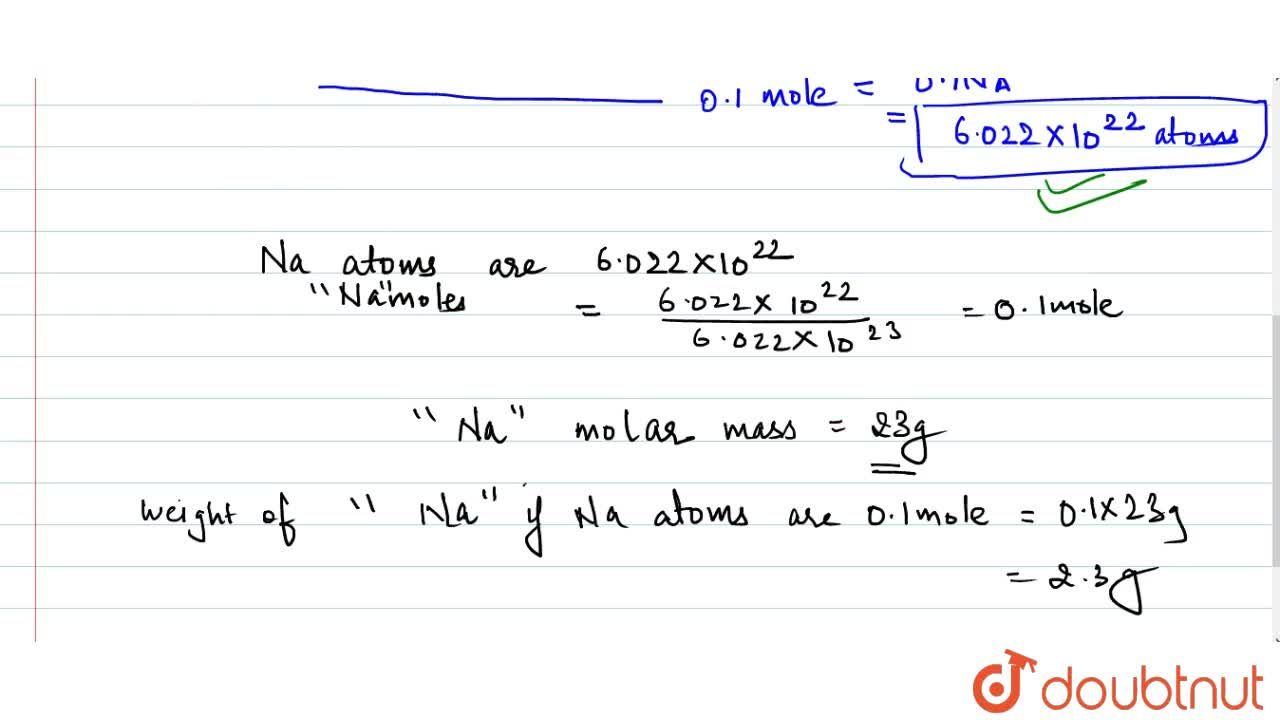 0.1 mole = 0.1NA
= 6.022×10^22 atoms
Na atoms are 6.022×10^22
"Na" moles = 6.022× 10^22 / 6.022×10^23 = 0.1mole
"Na" molar mass = 23g
weight of "Na" if Na atoms are 0.1mole = 0.1×23g
= 2.3g
doubtnut